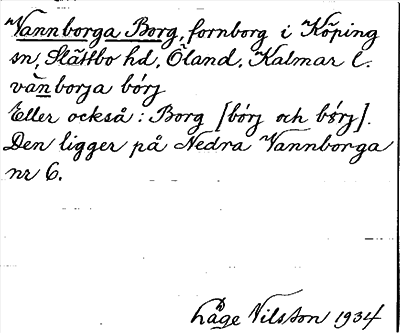 Vannborga Borg, fornborg i Köping
sn, Slättbo hd, Öland, Kalmar l.
vànborja bórj
Eller också: Borg [bórj och bǿrj].
Den ligger på Nedra Vannborga
nr 6.
Låge Nilsson 1934